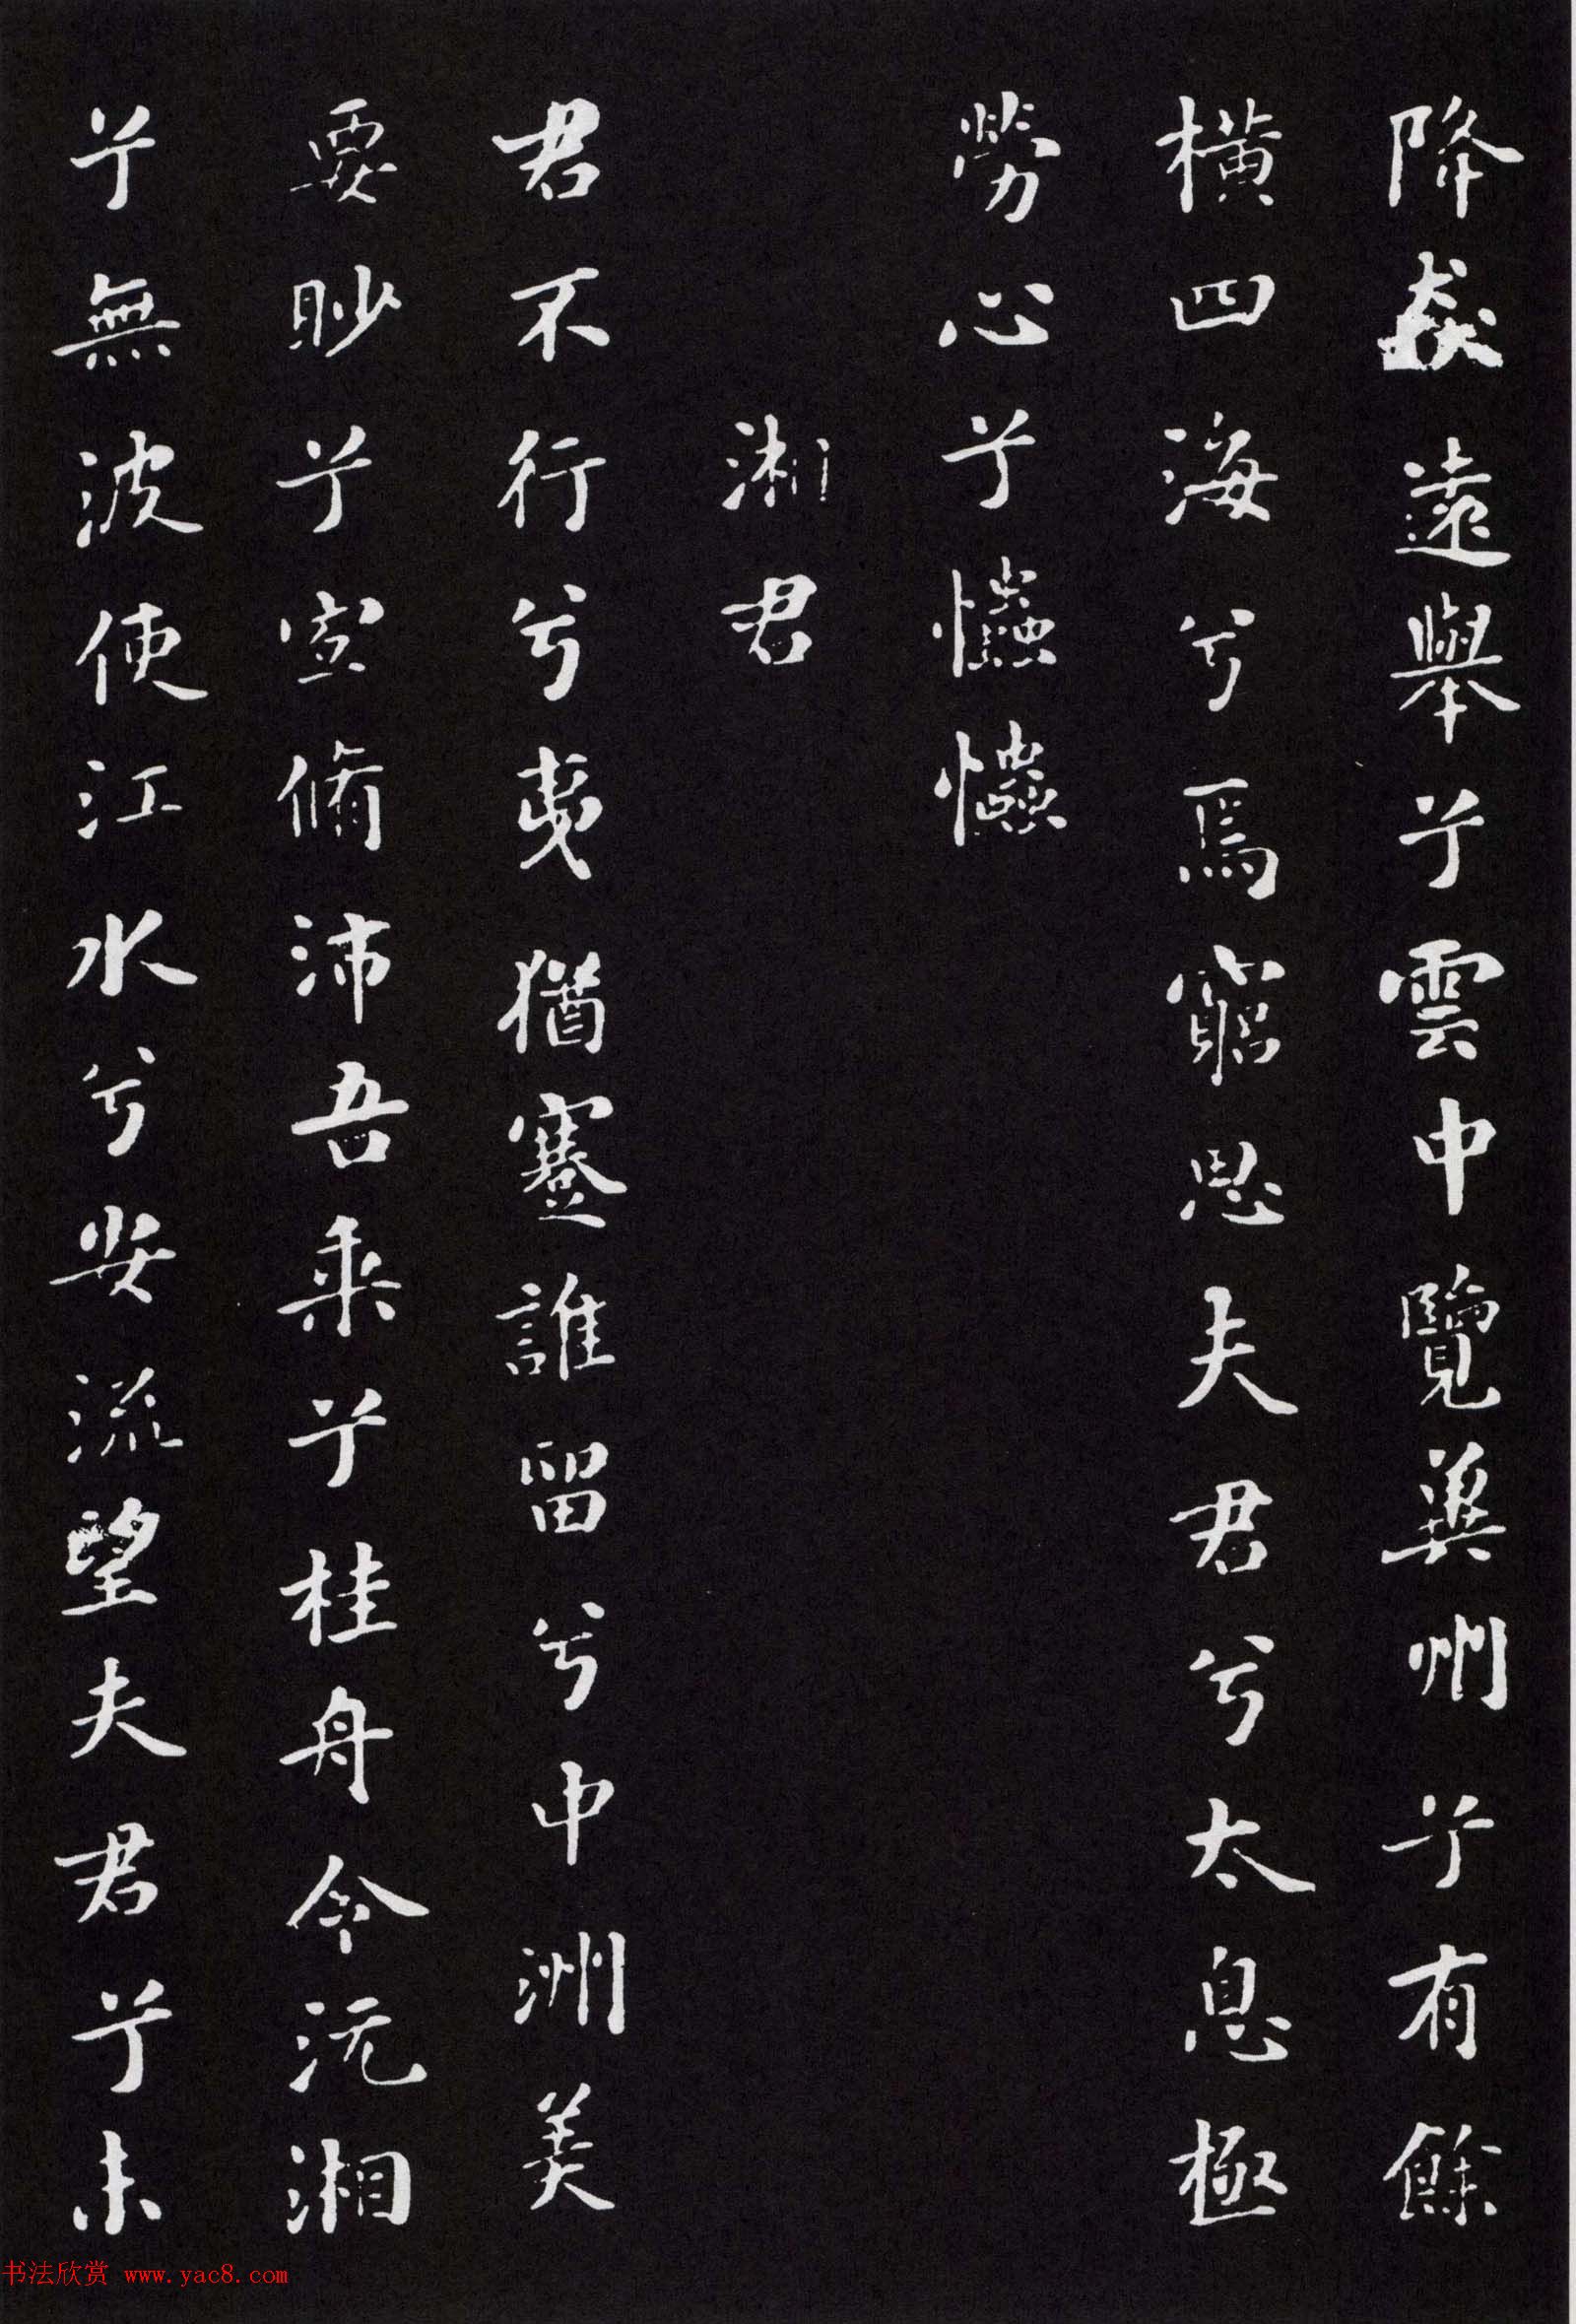 降猋遠舉兮雲中覽冀州兮有餘
橫四海兮焉窮思夫君兮太息極
勞心兮忡忡
湘君
君不行兮夷猶蹇誰留兮中洲美
要眇兮宜脩沛吾乘兮桂舟令沅湘
兮無波使江水兮安流望夫君兮未
书法欣赏 www.yac8.com